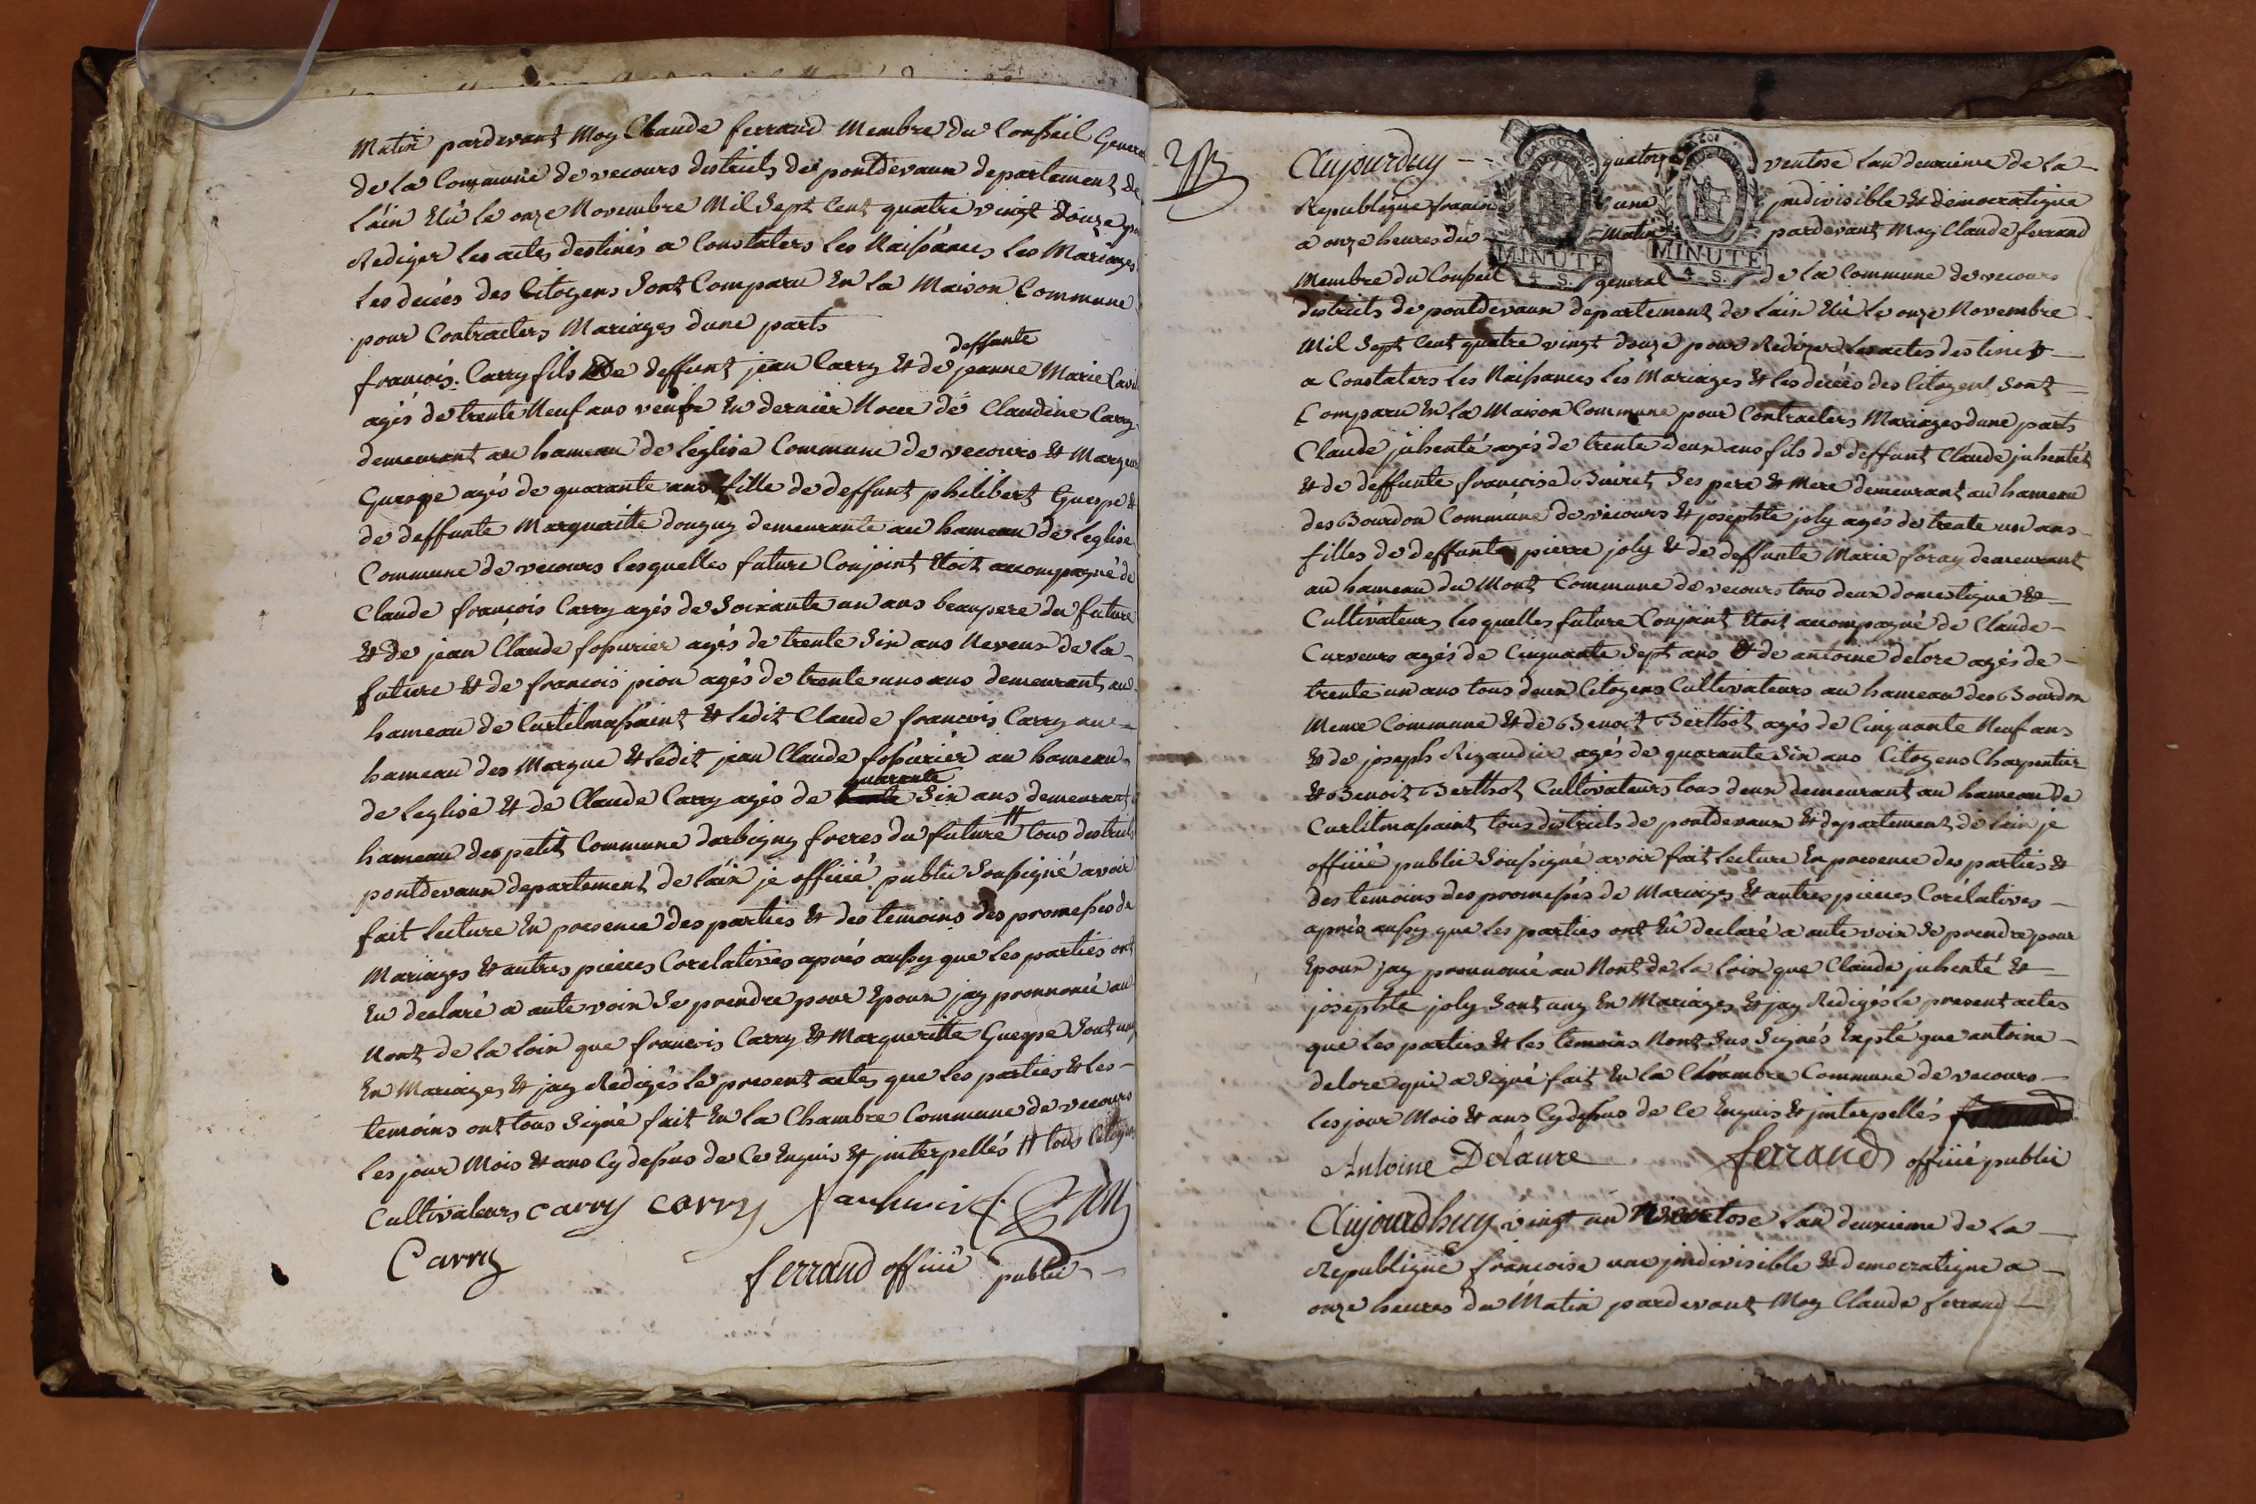 Matin pardevant Moy Claude ferrand Membre du Conseil General
de La Commune de vecours districts de pontdevaux departement de
L'ain Elû Le onze Novembre Mil Sept Cent quatre vingt douze pour
Rediger Les actes destinés a Constaters Les Naissances Les Mariages
Les deciés des Citoyens Sont Comparu En La Maison Commune
pour Contracters Mariages dune parts
deffunte
francois Carry fils De deffunt jean Carry Et de jeanne Marie
agés de trente Neuf ans veufve En dernier Noce de Claudine Carry
demeurant au hameau de Leglise Commune de vecours Et
Guespe agés de quarante ans fille de deffunt philibert Guespe Et
de deffunte Margueritte douguy demeurante au hameau de Leglise
Commune de vecours Lesquelles future Conjoint Etoit accompagné de
Claude françois Carry agés de Soixante un ans beaupere du future
Et de jean Claude fossurier agés de trente Six ans Neveux de La
future Et de francois pion agés de trente uns ans demeurant au
hameau de Curtilmassaint Et Ledit Claude francois Carry au
hameau des Marque Et Ledit jean Claude fossurier au hameau
quarante
de Leglise Et de Claude Carry agés de trente Six ans demeurant
hameau des petit Commune darbigny freres du future # tous districts
pontdevaux departement de Lain je officié public Soussigné avoir
fait Lecture En presence des parties Et des temoins des promesses de
Mariages Et autres pieces Corelatives aprés aussy que Les parties ont
Eu declaré a aute voix Se prendre pour Epoux jay prononcé au
Nont de La Loix que francois Carry Et Margueritte Guespe Sont uny
En Mariages Et jay Redigés Le present actes que Les parties Et Les
temoins ont tous Signé fait En La Chambre Commune de vecours
Les jour Mois Et ans Cy dessus de Ce Enquis Et jnterpellés # tous Citoyens
Cultivateurs carry carry
Carry
ferrand officié public
Aujourduy quatorze ventose Lan deuxieme de La
Republique francoise une jndivisible Et democratique
a onze heures du Matin pardevant Moy Claude ferrand
MINUTE
4 S.
MINUTE
4 S.
Membre du Conseil general de La Commune de vecours
districts de pontdevaux departement de Lain Elû Le onze Novembre
Mil Sept Cent quatre vingt douze pour Rediger Les actes destinés
a Constaters Les Naissances Les Mariages Et Les deciés des Citoyens Sont
Comparu En La Maison Commune pour Contracters Mariages dune parts
Claude juhenté agés de trente deux ans fils de deffunt Claude juhentét
Et de deffunte francoise Buiret Ses pere Et Mere demeurant au hameau
des Bourdon Commune de vecours Et josephte joly agés de trente un ans
filles de deffunte pierre joly Et de deffunte Marie foray demeurant
au hameau du Mont Commune de vecours tous deux domestique Et
Cultivateurs Lesquelles future Conjoint Etoit accompagné de Claude
Curveurs agés de Cinquante Sept ans Et de antoine delore agés de
trente un ans tous deux Citoyens Cultivateurs au hameau des Bourdon
Meme Commune Et de Benoit Berthot agés de Cinquante Neuf ans
Et de joseph Rigaudier agés de quarante Six ans Citoyens Charpentier
Et Benoit Berthot Cultivateurs tous deux demeurant au hameau de
Curtilmasaint tous districts de pontdevaux Et departement de Lain je
officié public Soussigné avoir fait Lecture En presence des parties Et
des temoins des promesses de Mariages Et autres pieces Corélatives
aprés aussy que Les parties ont Eû declaré a aute voix Se prendre pour
Epoux jay prononcé au Nont de La Loix que Claude juhenté Et
josephte joly Sont uny En Mariages Et jay Redigés Le present actes
que Les parties Et Les temoins Nont Sus Signés Expté que antoine
delore qui a Signé fait En La Chambre Commune de vecours
Les jour Mois Et ans Cy dessus de Ce Enquis Et jnterpellés
Antoine Delaure ferrand officié public
Aujourdhuy vingt un ventose Lan deuxieme de La
Republique francoise une jndivisible Et democratique a
onze heures du Matin pardevant Moy Claude ferrand